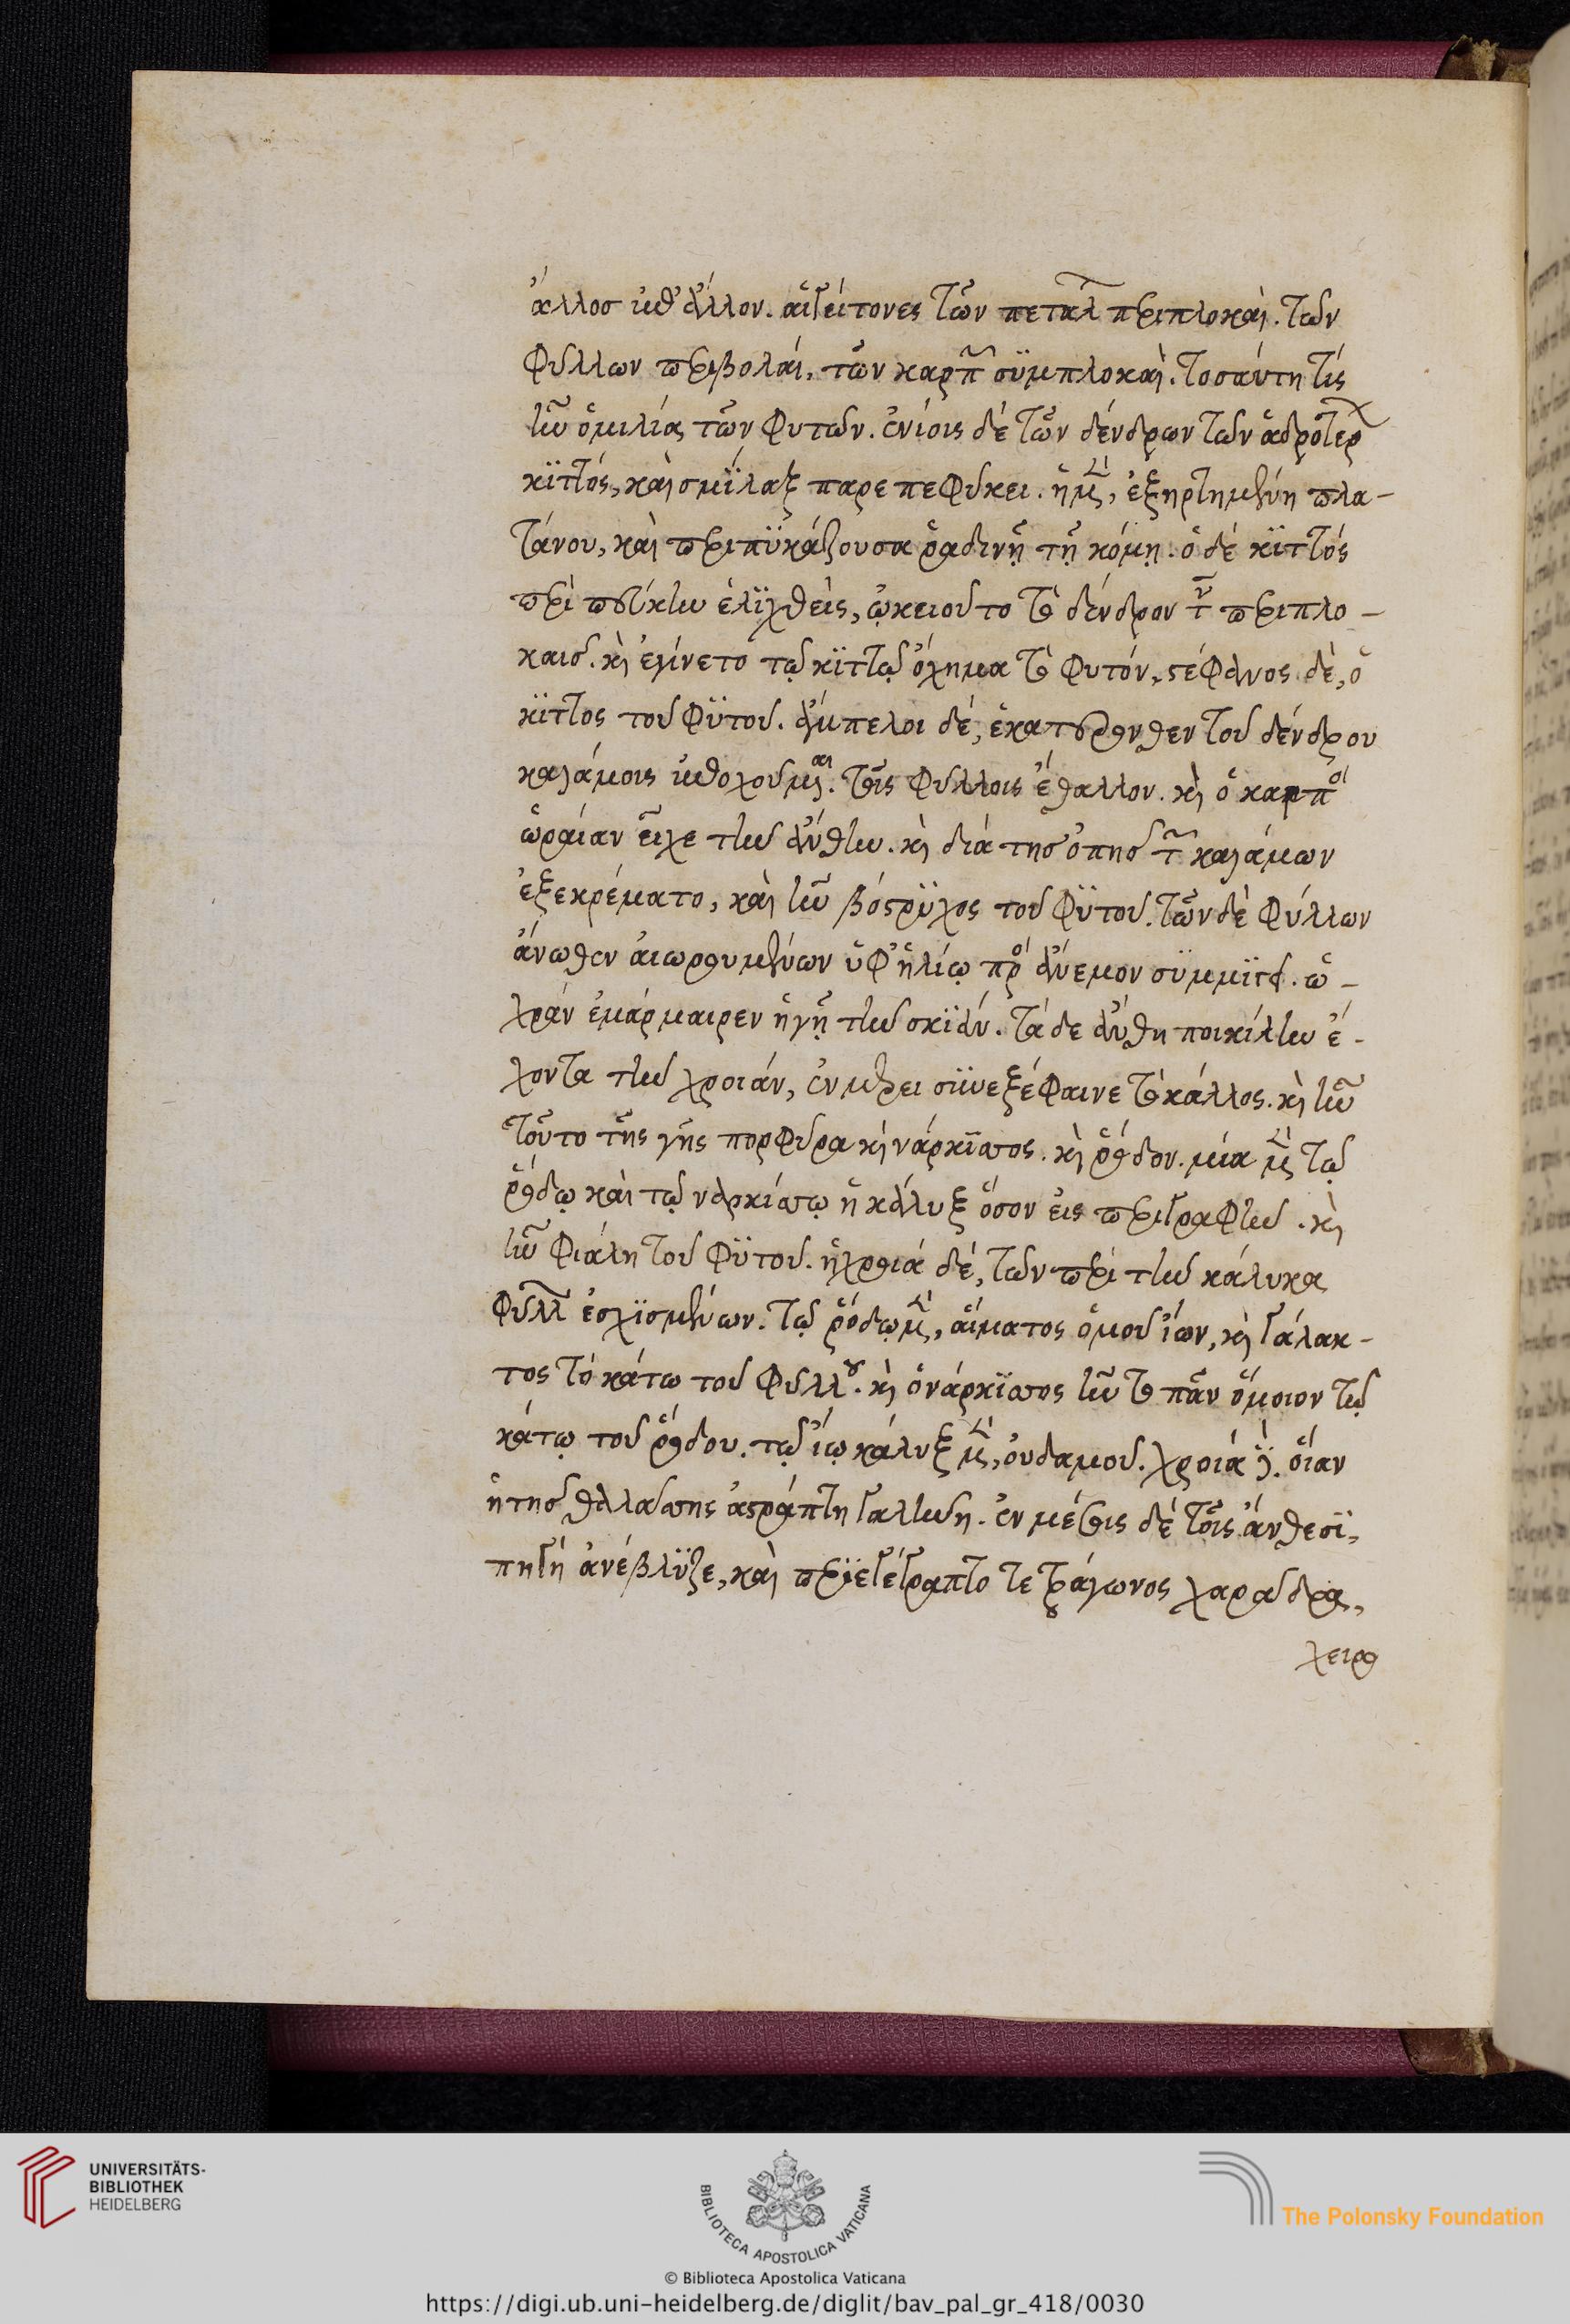 ἄλλοσ ἐπ' ἄλλον. αἱ γείτονες τῶν πετάλ περιπλοκαὶ. τῶν
φύλλων περιβολαί, τῶν καρπ̃ συμπλοκαὶ. τοσαύτη τίς
ἦν ὁμιλία τῶν φυτῶν. ἐνίοις δὲ τῶν δένδρων τῶν ἁδροτέρ
κιττός, καὶ σμίλαξ παρεπεφύκει. ἡ μὲν, ἐξηρτημένη πλα-
τάνου, καὶ περιπυκάζουσα ῥαδινῇ τῇ κόμῃ. ὁ δὲ κιττός
περὶ πεύκην ἑλιχθείς, ᾠκειοῦτο τὸ δένδρον τ περιπλο-
καισ. κὶ ἐγίνετο τῷ κιττῷ ὄχημα τὸ φυτόν, στέφανος δὲ, ὁ
κιττος τοῦ φυτοῦ. ἄμπελοι δέ, ἑκατέρωθεν τοῦ δένδρου
καλάμοις ἐποχούμεναι. τοῖς φύλλοις ἔθαλλον. κὶ ὁ καρπὸ
ὡραίαν εἶχε τὴν ἄνθην. κὶ διὰ τησ ὀπησ τ̃ καλάμων
ἐξεκρέματο, καὶ ἦν βόστρυχος τοῦ φυτοῦ. τῶν δὲ φύλλων
ἄνωθεν αἰωρουμένων ὑφ' ἡλίῳ πρὸ ἄνεμον συμμιγεῖ. ὠ-
χρὰν ἐμάρμαιρεν ἡ γῆ τὴν σκιάν. τὰ δε ἄνθη ποικίλην ἔ-
χοντα τὴν χροιάν, ἐν μέρει συνεξέφαινε τὸ κάλλος. κὶ ἦν
τοῦτο τῆς γῆς πορφύρα κὶ νάρκισσος. κὶ ῥόδον. μία μὲν τῷ
ῥόδῳ καὶ τῷ ναρκίσσῳ ἡ κάλυξ ὅσον εἰς περιγραφὴν. κὶ
ἦν φιάλη τοῦ φυτοῦ. ἡ χροιά δέ, τῶν περὶ τὴν κάλυκα
φύλλ ἐσχισμένων. τῷ ῥόδῳ μὲν, αἵματος ὁμοῦ ἴων, κὶ γάλακ-
τος τὸ κάτω τοῦ φύλλου. κὶ ὁ νάρκισσος ἦν τὸ πᾶν ὅμοιον τῷ
κάτῳ τοῦ ῥόδου. τῷ ἴῳ κάλυξ μὲν, οὐδαμοῦ. χροιὰ δὲ. οἵαν
ἡ τησ θαλάσσης ἀστράπτη γαλήνη. ἐν μέσοις δὲ τοῖς ἄνθεσι,
πηγὴ ἀνέβλυζε, καὶ περιεγέγραπτο τετράγωνος χαράδρα,
χειρο
UNIVERSITÄTS-
BIBLIOTHEK
HEIDELBERG
BIBLIOTECA APOSTOLICA VATICANA
The Polonsky Foundation
© Biblioteca Apostolica Vaticana
https://digi.ub.uni-heidelberg.de/diglit/bav_pal_gr_418/0030